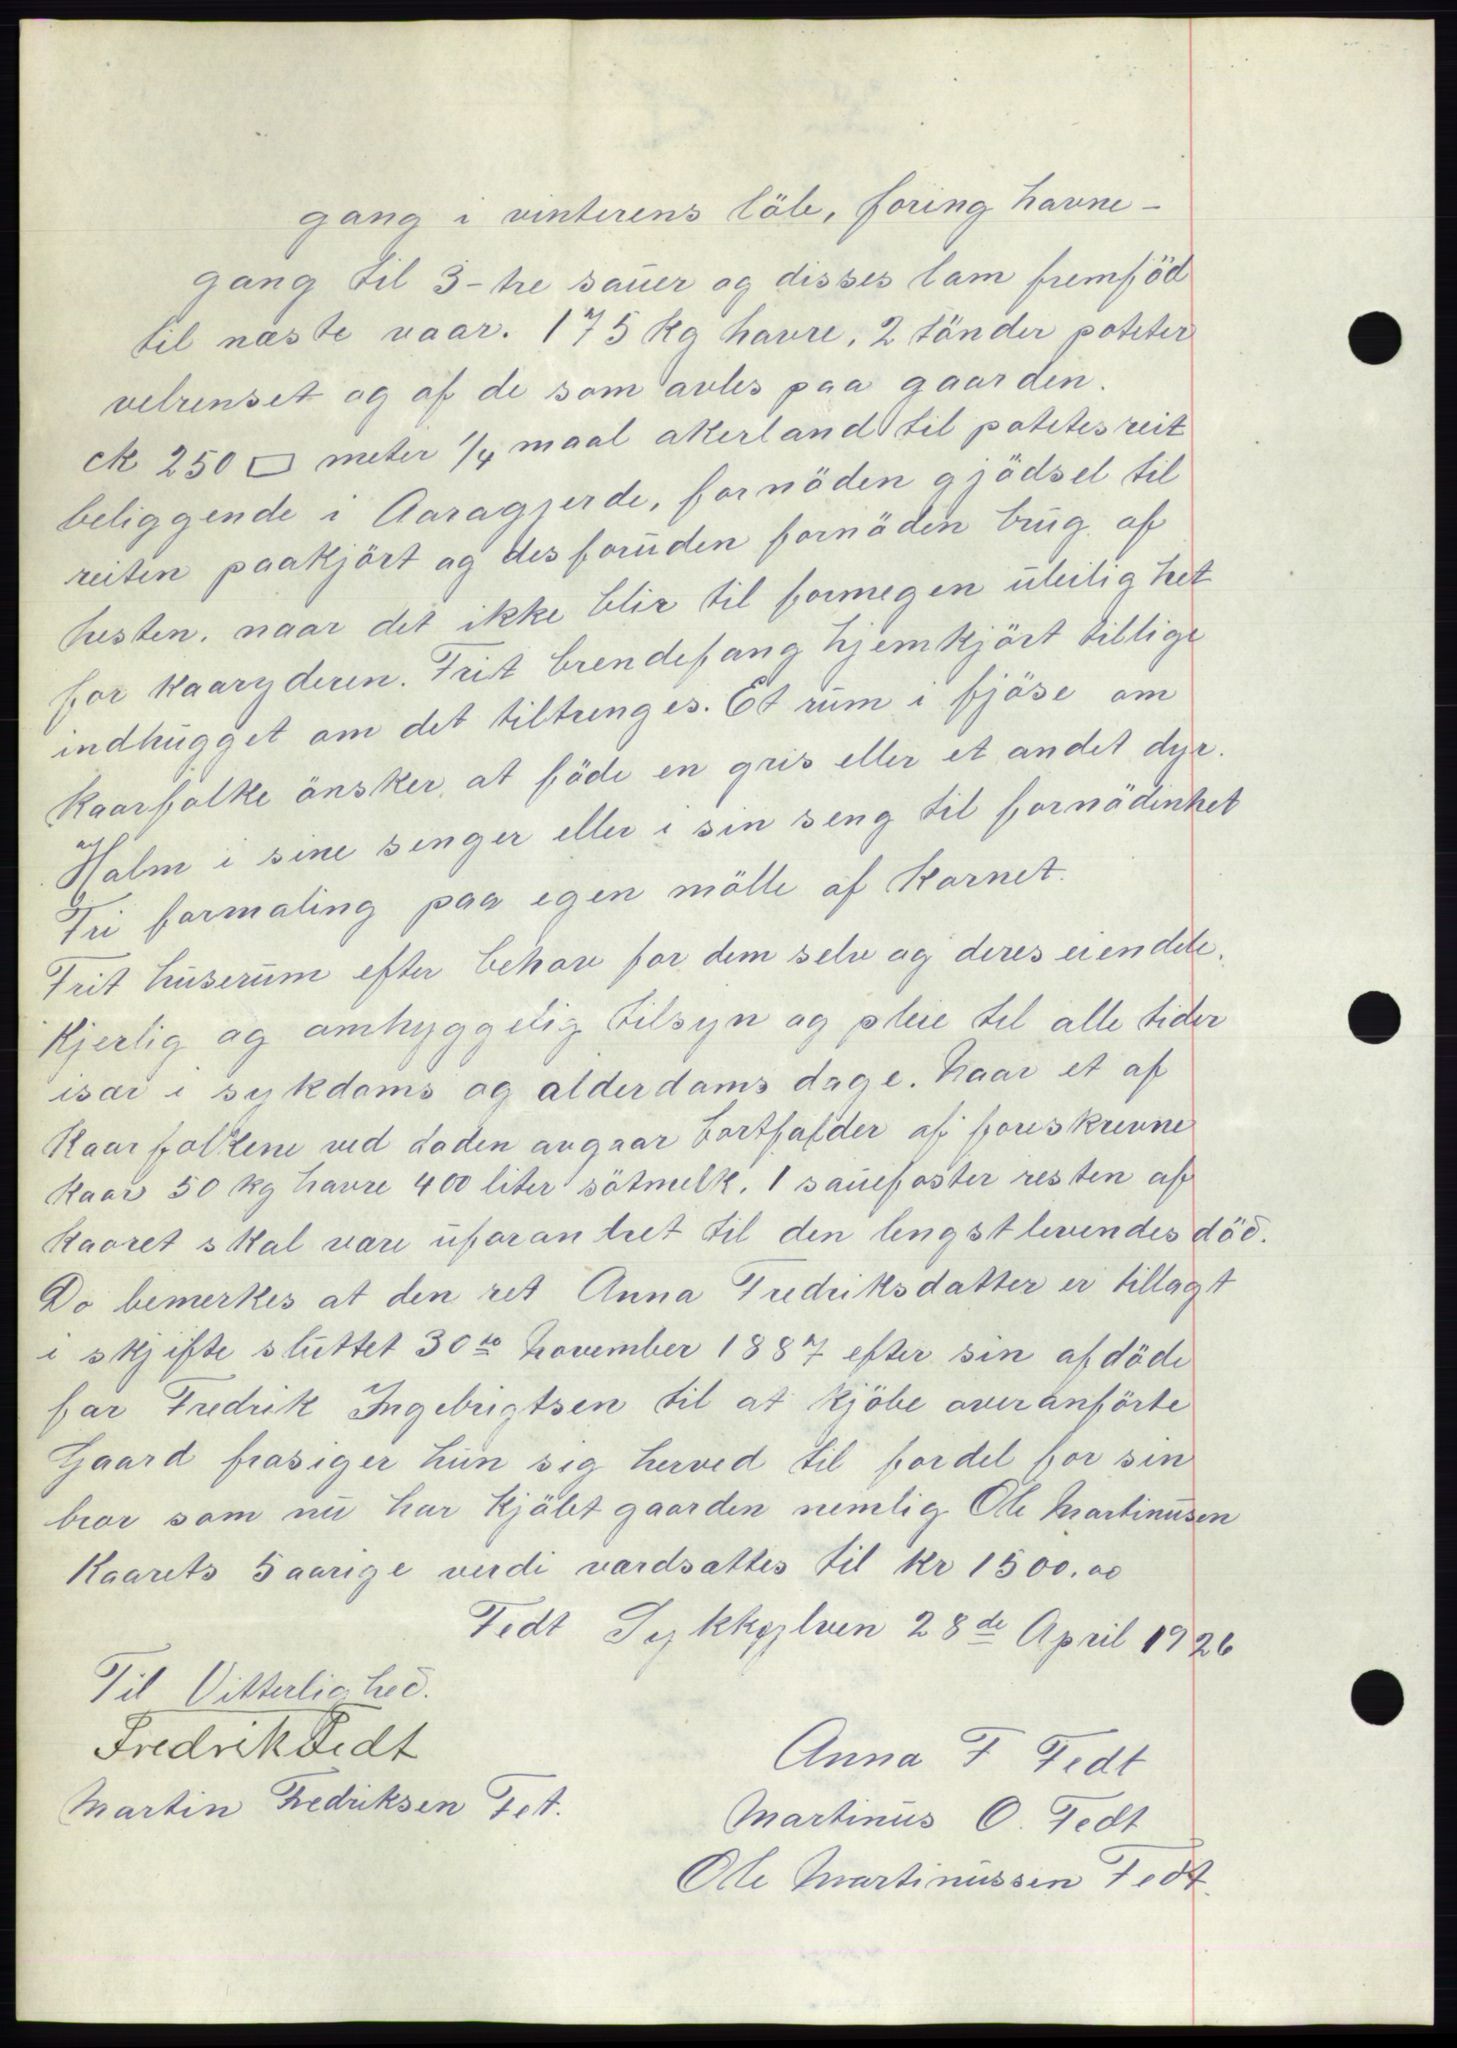 gang i vinterens löb, foring havne-
gang til 3-tre sauer og disses lam fremföd
til næste vaar. 175 kg havre, 2 tönder poteter
velrenset og af de som avles paa gaarden.
ck 250 □ meter 1/4 maal akerland til potetesreit
beliggende i Aaragjerde, fornöden gjödsel til
reiten paakjört og desforuden fornöden brug af
hesten, naar det ikke blir til formegen uleilighet
for kaaryderen. Frit brendefang hjemkjört tillige
indhugget om det tiltrenges. Et rum i fjöse om
kaarfolke önsker at föde en gris eller et andet dyr.
Halm i sine senger eller i sin seng til fornödenhet
Fri formaling paa egen mölle af kornet.
Frit huserum efter behov for dem selv og deres eiendele.
Kjerlig og omhyggelig tilsyn og pleie til alle tider
især i sykdoms og alderdoms dage. Naar et af
kaarfolkene ved döden avgaar bortfalder af foreskrevne
kaar 50 kg havre 400 liter sötmelk, 1 sauefoster resten af
kaaret skal være uforantret til den lengstlevendes död.
Do bemerkes at den ret Anna Fredriksdatter er tillagt
i skjifte sluttet 30te November 1887 efter sin afdöde
far Fredrik Ingebrigtsen til at kjöbe overanförte
Gaard frasiger hun sig herved til fordel for sin
bror som nu har kjöbt gaarden nemlig Ole Martinusen
Kaarets 5 aarige verdi værdsættes til kr 1500.00
Fedt Sykkylven 28de April 1926
Til Vitterlighed.
Fredrik Fedt
Martin Fredriksen Fet.
Anna F Fedt
Martinus O. Fedt
Ole Martinussen Fedt.